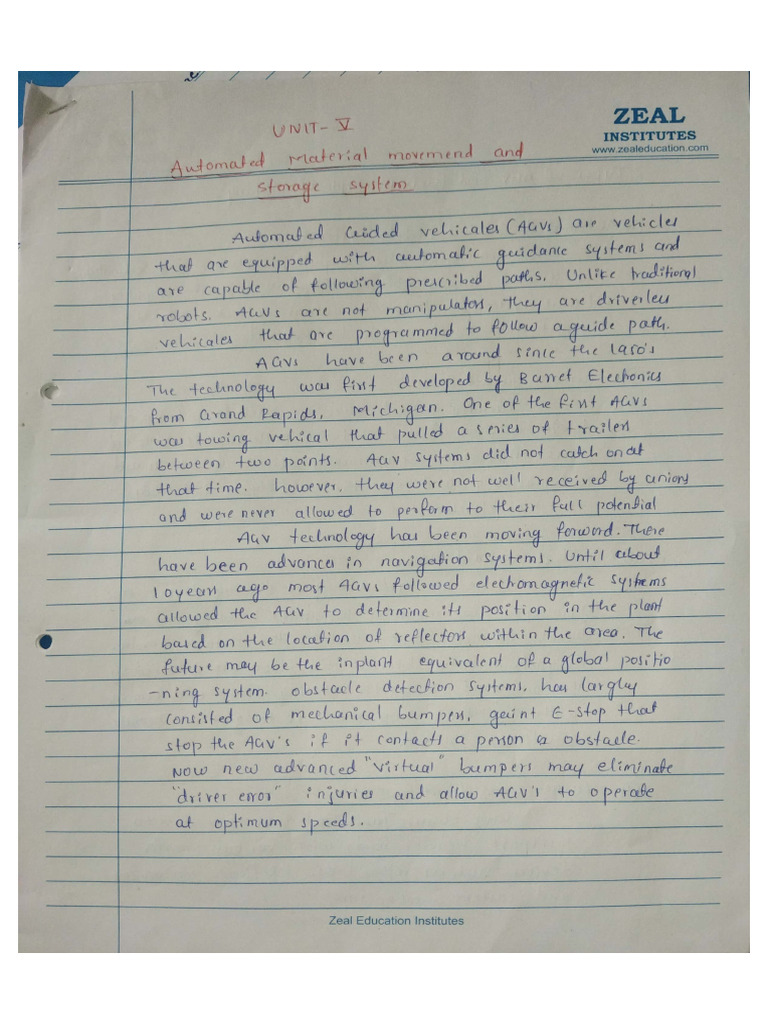 ZEAL
INSTITUTES
www.zealeducation.com
UNIT-V
Automated Material movemend and
storage system
Automated Guided vehicales (AGVs) are vehicles
that are equipped with automatic guidance systems and
are capable of following prescribed paths. Unlike traditional
robots. AGVs are not manipulators, they are driverless
vehicales that are programmed to follow a guide path.
AGVs have been around since the 1950's
The technology was first developed by Barret Elechonics
from Grand Rapids, Michigan. One of the first AGVs
was towing vehical that pulled a series of trailers
between two points. AGV systems did not catch on at
that time. however, they were not well received by unions
and were never allowed to perform to their full potential
AGV technology has been moving forword. There
have been advances in navigation systems. Until about
10 years ago most AGVs followed electromagnetic systems
allowed the AGV to determine its position in the plant
based on the location of reflectors within the area. The
future may be the inplant equivalent of a global positio
-ning system. obstacle detection systems, has largly
consisted of mechanical bumpers, E-stop that
stop the AGV's if it contacts a person obstacle.
Now new advanced "virtual" bumpers may eliminate
"driver error" injuries and allow AGV's to operate
at optimum speeds.
Zeal Education Institutes